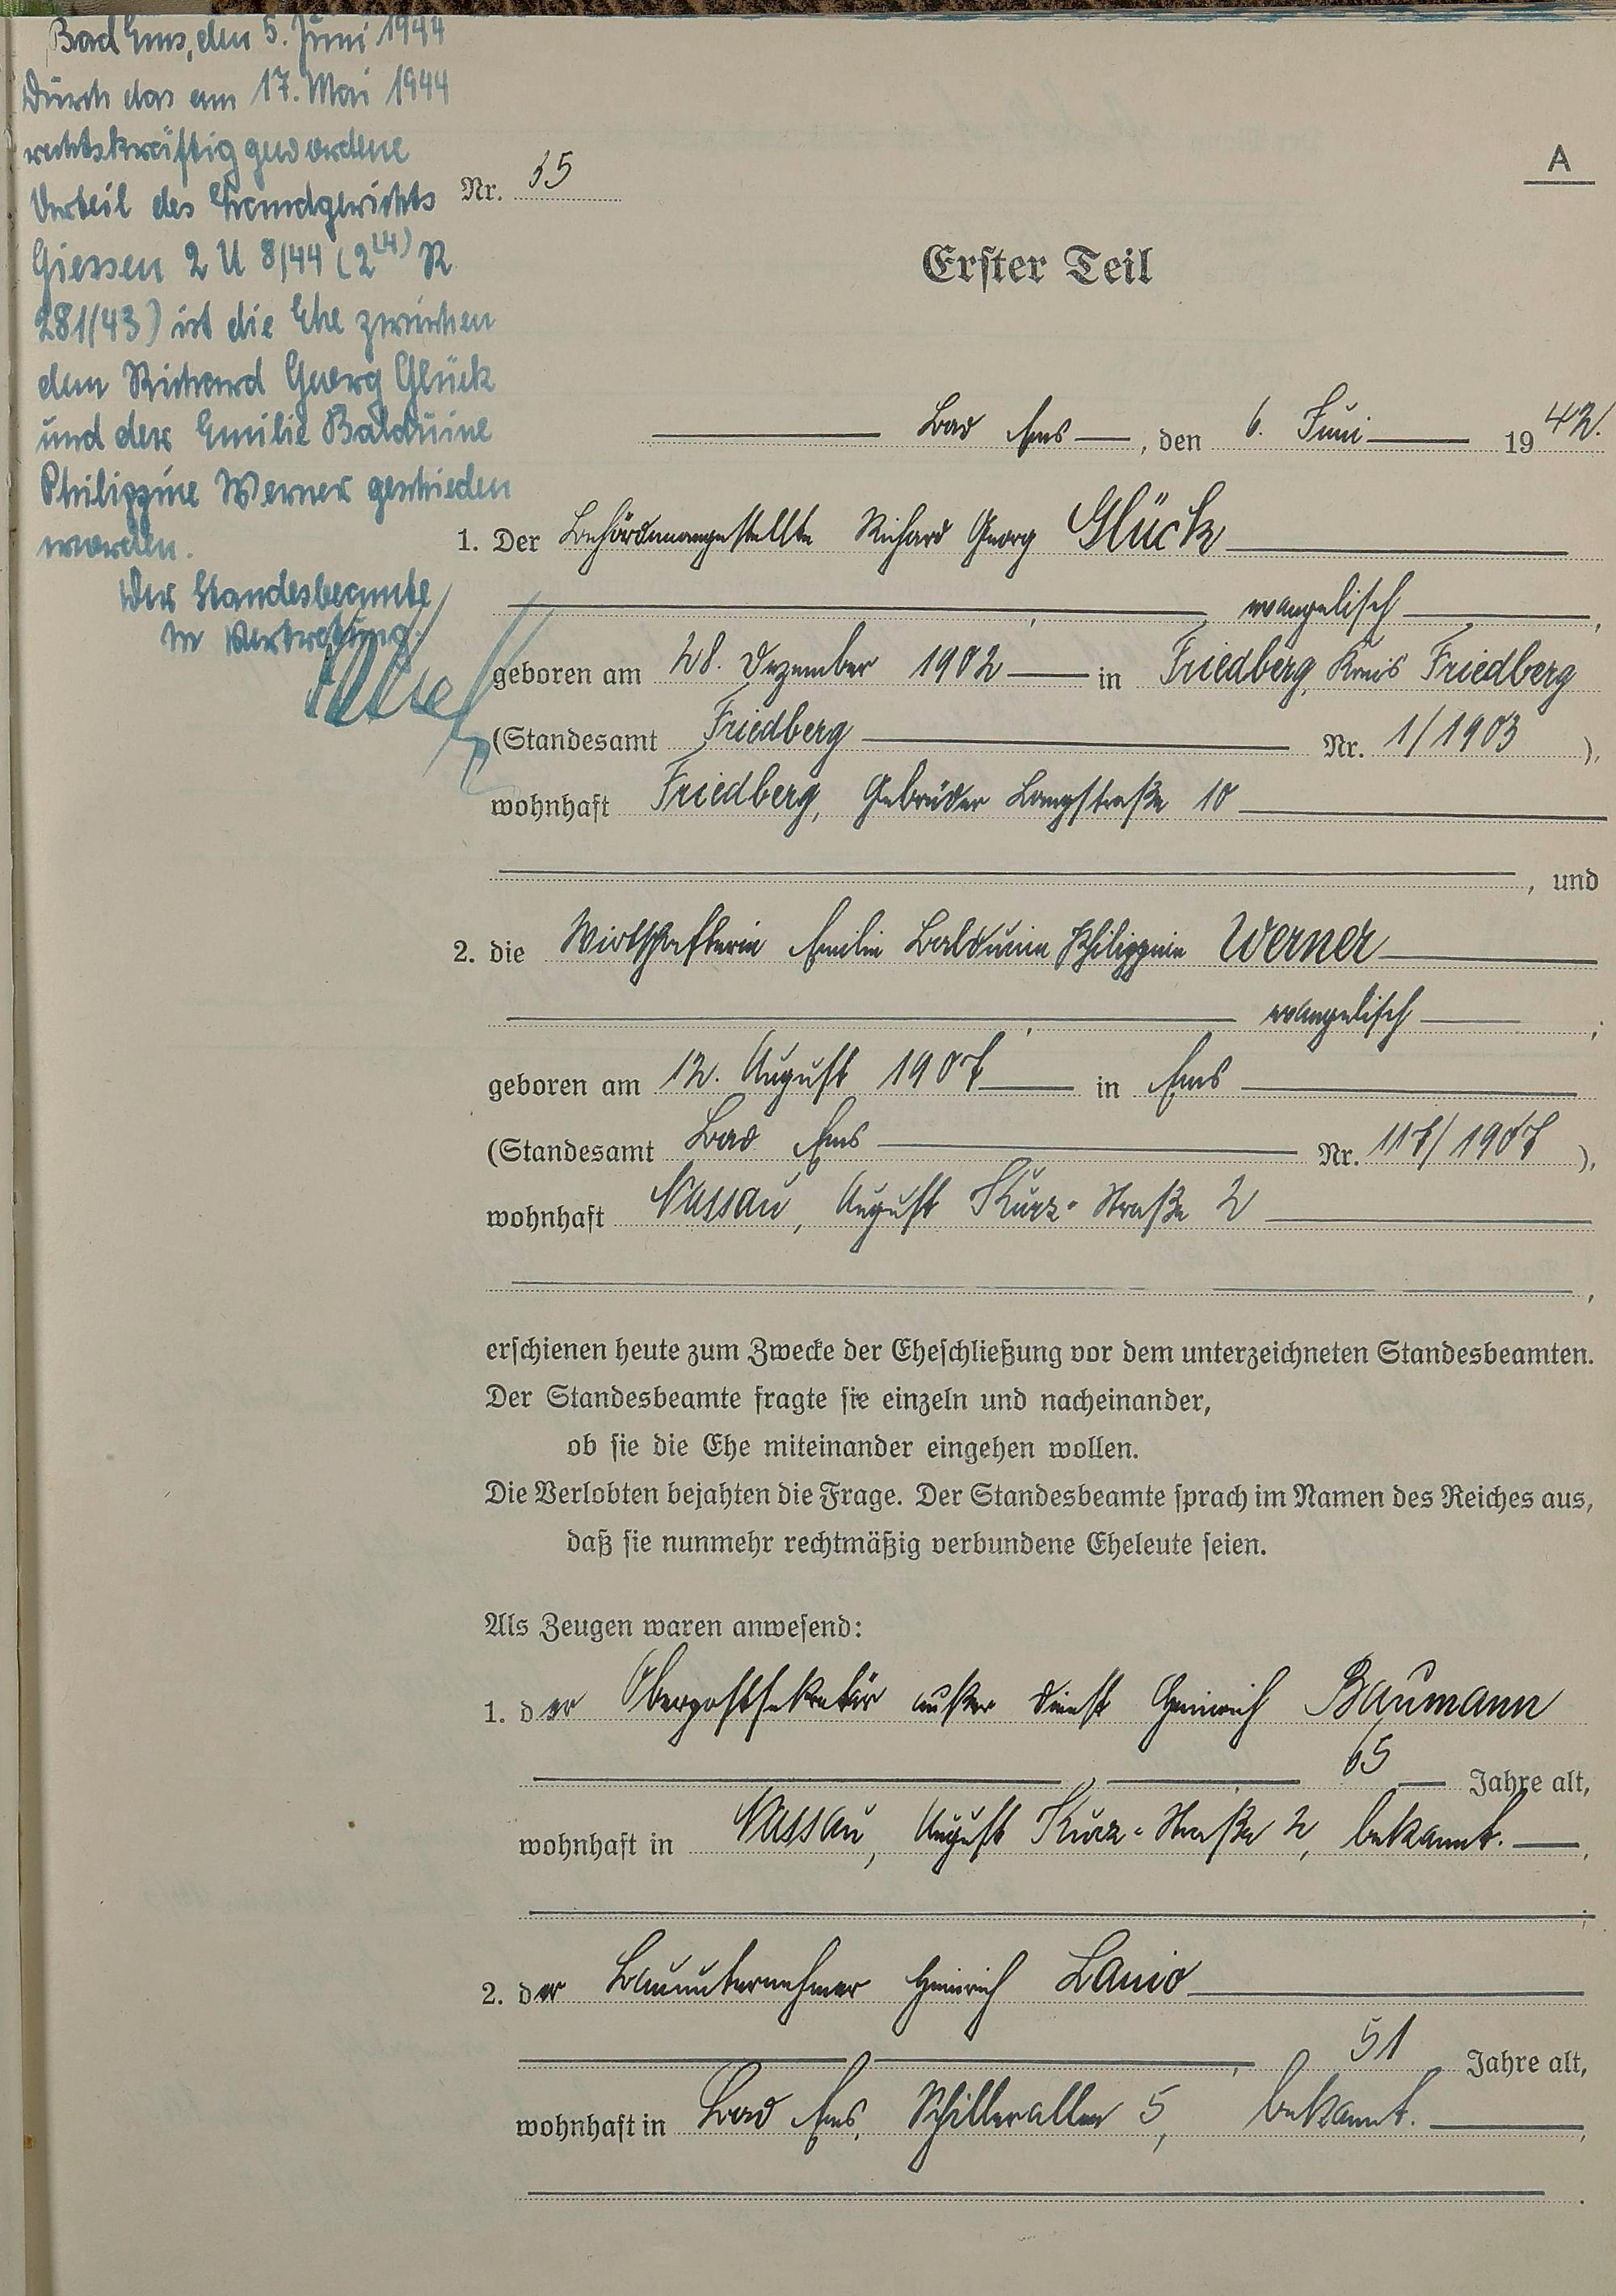 Bad Ems, den 5. Juni 1944
Durch das am 17. Mai 1944
rechtskräftig gewordene
Urteil des Landgerichts
Giessen 2 U 8/44 (2 R
281/43) ist die Ehe zwischen
dem Richard Georg Glück
und der Emilie Balduine
Philippine Werner geschieden
worden.
Der Standesbeamte
In Vertretung.
A
Nr. 35
Erster Teil
Bad Ems, den 6. Juni 1942.
1. Der Behördenangestellte Richard Georg Glück
evangelisch,
geboren am 28. Dezember 1902 in Friedberg, Kreis Friedberg
(Standesamt Friedberg Nr. 1/1903),
wohnhaft Friedberg, Gebrüder Langstraße 10
, und
2. die Wirtschafterin Emilie Balduine Philippine Werner
evangelisch,
geboren am 12. August 1907 in Ems
(Standesamt Bad Ems Nr. 117/1907),
wohnhaft Nassau, August Kurz-Straße 2
,
erschienen heute zum Zwecke der Eheschließung vor dem unterzeichneten Standesbeamten.
Der Standesbeamte fragte sie einzeln und nacheinander,
ob sie die Ehe miteinander eingehen wollen.
Die Verlobten bejahten die Frage. Der Standesbeamte sprach im Namen des Reiches aus,
daß sie nunmehr rechtmäßig verbundene Eheleute seien.
Als Zeugen waren anwesend:
1. der Oberpostsekretär außer Dienst Heinrich Baumann
65 Jahre alt,
wohnhaft in Nassau, August Kurz-Straße 2, bekannt.
2. der Bauunternehmer Heinrich Lanio
51 Jahre alt,
wohnhaft in Bad Ems, Schillerallee 5, bekannt.